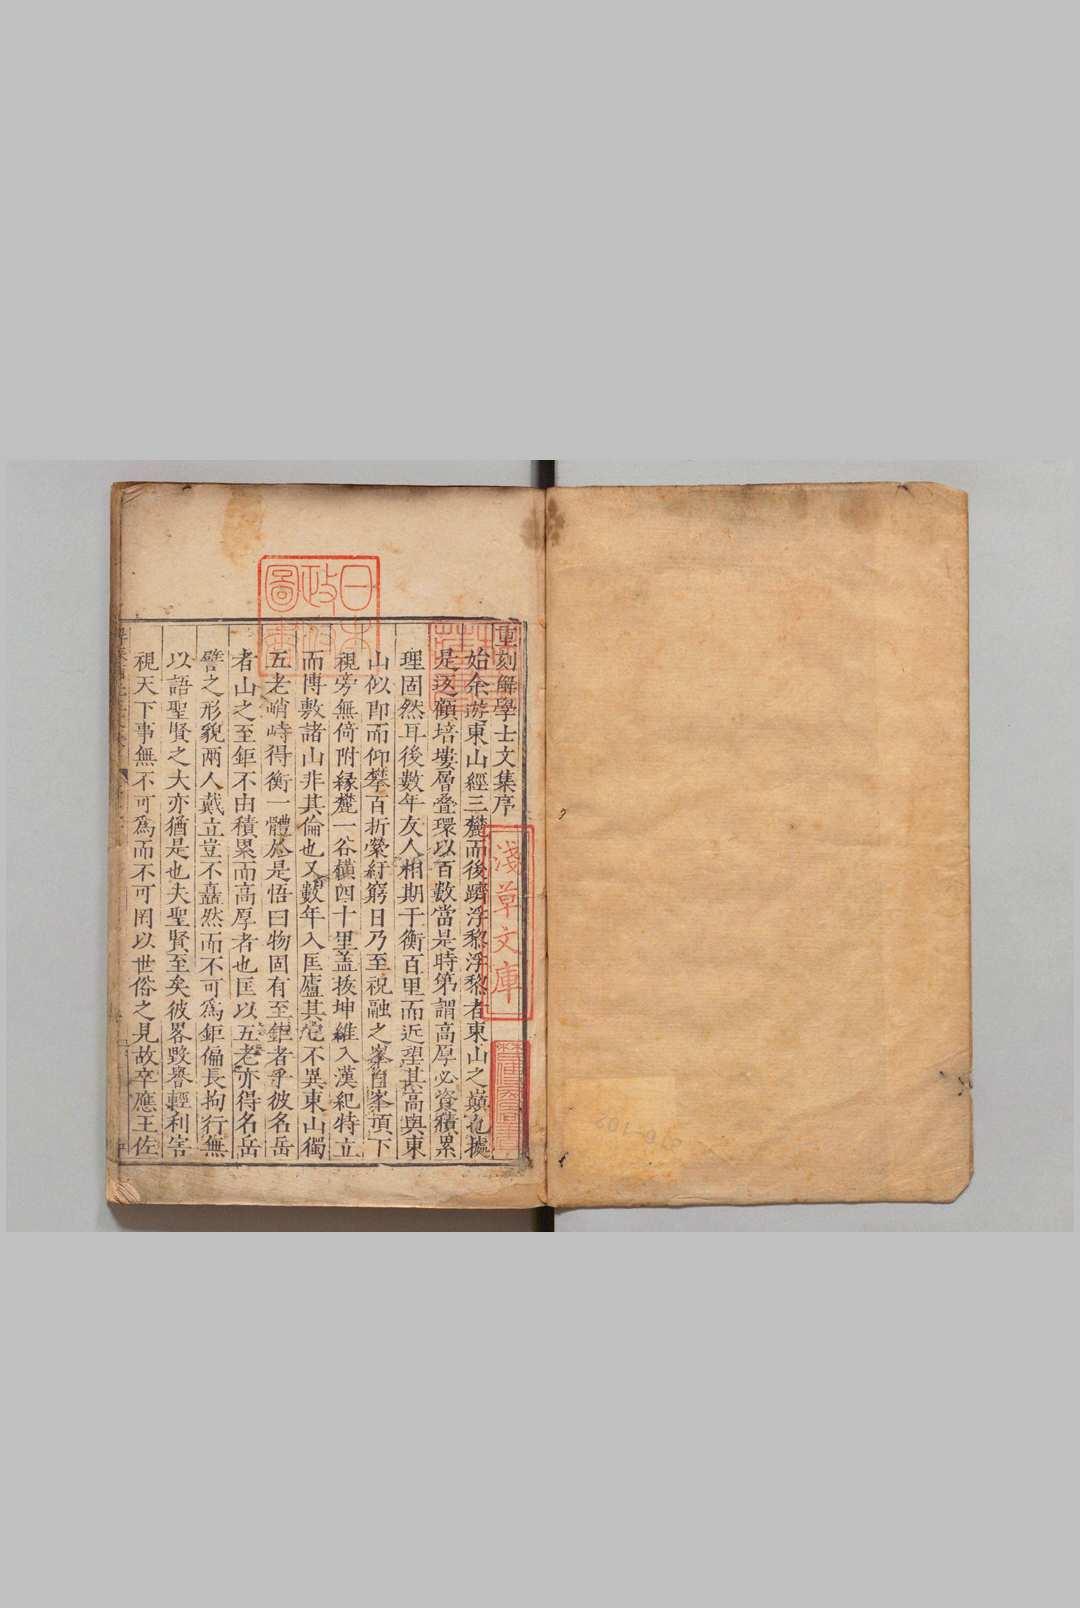 重刻解學士文集序
始余遊東山經三麓而後躋浮黎浮黎者東山之巔也據
是返顧培塿層疊環以百數當是時第謂高厚必資積累
理固然耳後數年友人相期于衡百里而近望其高與東
山似即而仰攀百折縈紆窮日乃至祝融之峯自峯頂下
視旁無倚附緣麓一谷橫四十里盖拔坤維入漢紀特立
而博敷諸山非其倫也又數年入匡廬其它不異東山獨
五老峭峙得衡一體於是悟曰物固有至鉅者乎彼名岳
者山之至鉅不由積累而高厚者也匡以五老亦得名岳
譬之形貌兩人戴立豈不矗然而不可為鉅偏長拘行無
以語聖賢之大亦猶是也夫聖賢至矣彼畧毀譽輕利害
視天下事無不可為而不可罔以世俗之見故卒應王佐
日本
政府
圖書
淺草文庫